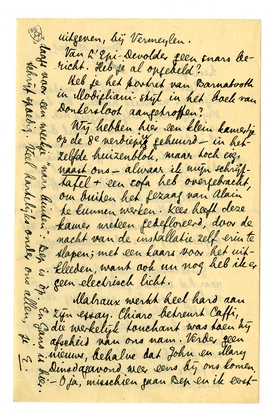 uitgeven, bij Vermeylen.
Van L'Epi-Devolder geen snars be-
richt. Heb je al opgebeld?
Heb je het portret van Barnabooth
in Modigliani-stijl in het boek van
Donkersloot aangetroffen?
Wij hebben hier een klein kamertje
op de 8e verdieping gehuurd – in het-
zelfde huizenblok, maar toch
naast ons – alwaar ik mijn schrijf-
tafel + een sofa heb overgebracht,
om buiten het gezang van Alain
te kunnen werken. Kees heeft deze
kamer meteen gedefloreerd, door de
nacht van de installatie zelf erin te
slapen; met een kaars voor het uit-
kleeden, want ook nu nog heb ik er
geen electrisch licht.
Malraux werkt heel hard aan
zijn essay. Chiaro betreurt Caffi,
die werkelijk touchant was toen hij
afscheid van ons nam. Verder geen
nieuws, behalve dat John en Mary
Dinsdagavond weer eens bij ons komen.
O ja, misschien gaan Bep en ik eerst-
daags voor een weekje naar buiten. Bep is op. En Gans is hier.
Schrijf spoedig. Veel hartelijks onder ons allen, je E.